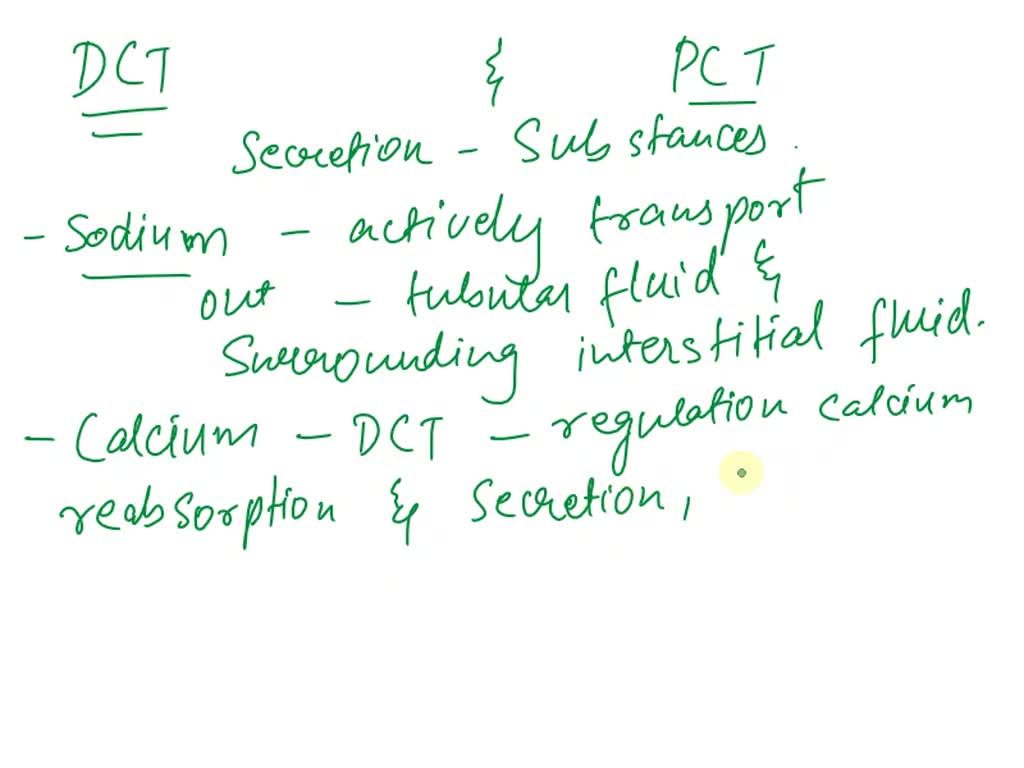 DCT & PCT
Secretion - Substances.
- Sodium - actively transport
out - tubular fluid &
Surrounding interstitial fluid.
- Calcium - DCT - regulation calcium
reabsorption & secretion,